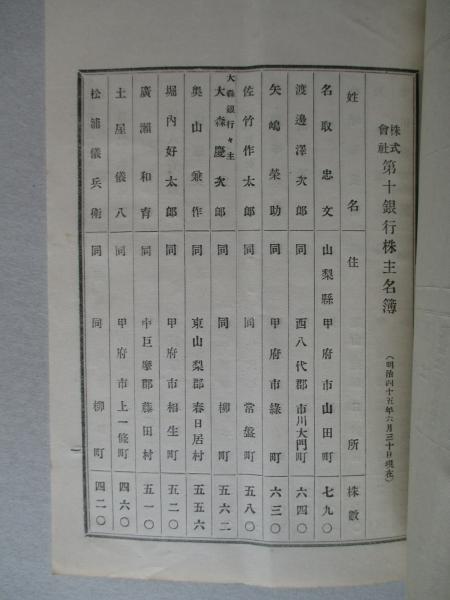 株式會社第十銀行株主名簿
(明治四十五年六月三十日現在)
姓名 住所 株數
名取忠文 山梨縣甲府市山田町 七九〇
渡邊澤次郎 同 西八代郡市川大門町 六四〇
矢嶋榮助 同 甲府市綠町 六三〇
佐竹作太郎 同 同 常盤町 五八〇
大森銀行々主
大森慶次郎 同 同 柳町 五六二
奥山兼作 同 東山梨郡春日居村 五五六
堀内好太郎 同 甲府市相生町 五二〇
廣瀨和育 同 中巨摩郡藤田村 五一〇
土屋儀八 同 甲府市上一條町 四六〇
松浦儀兵衛 同 同 柳町 四二〇